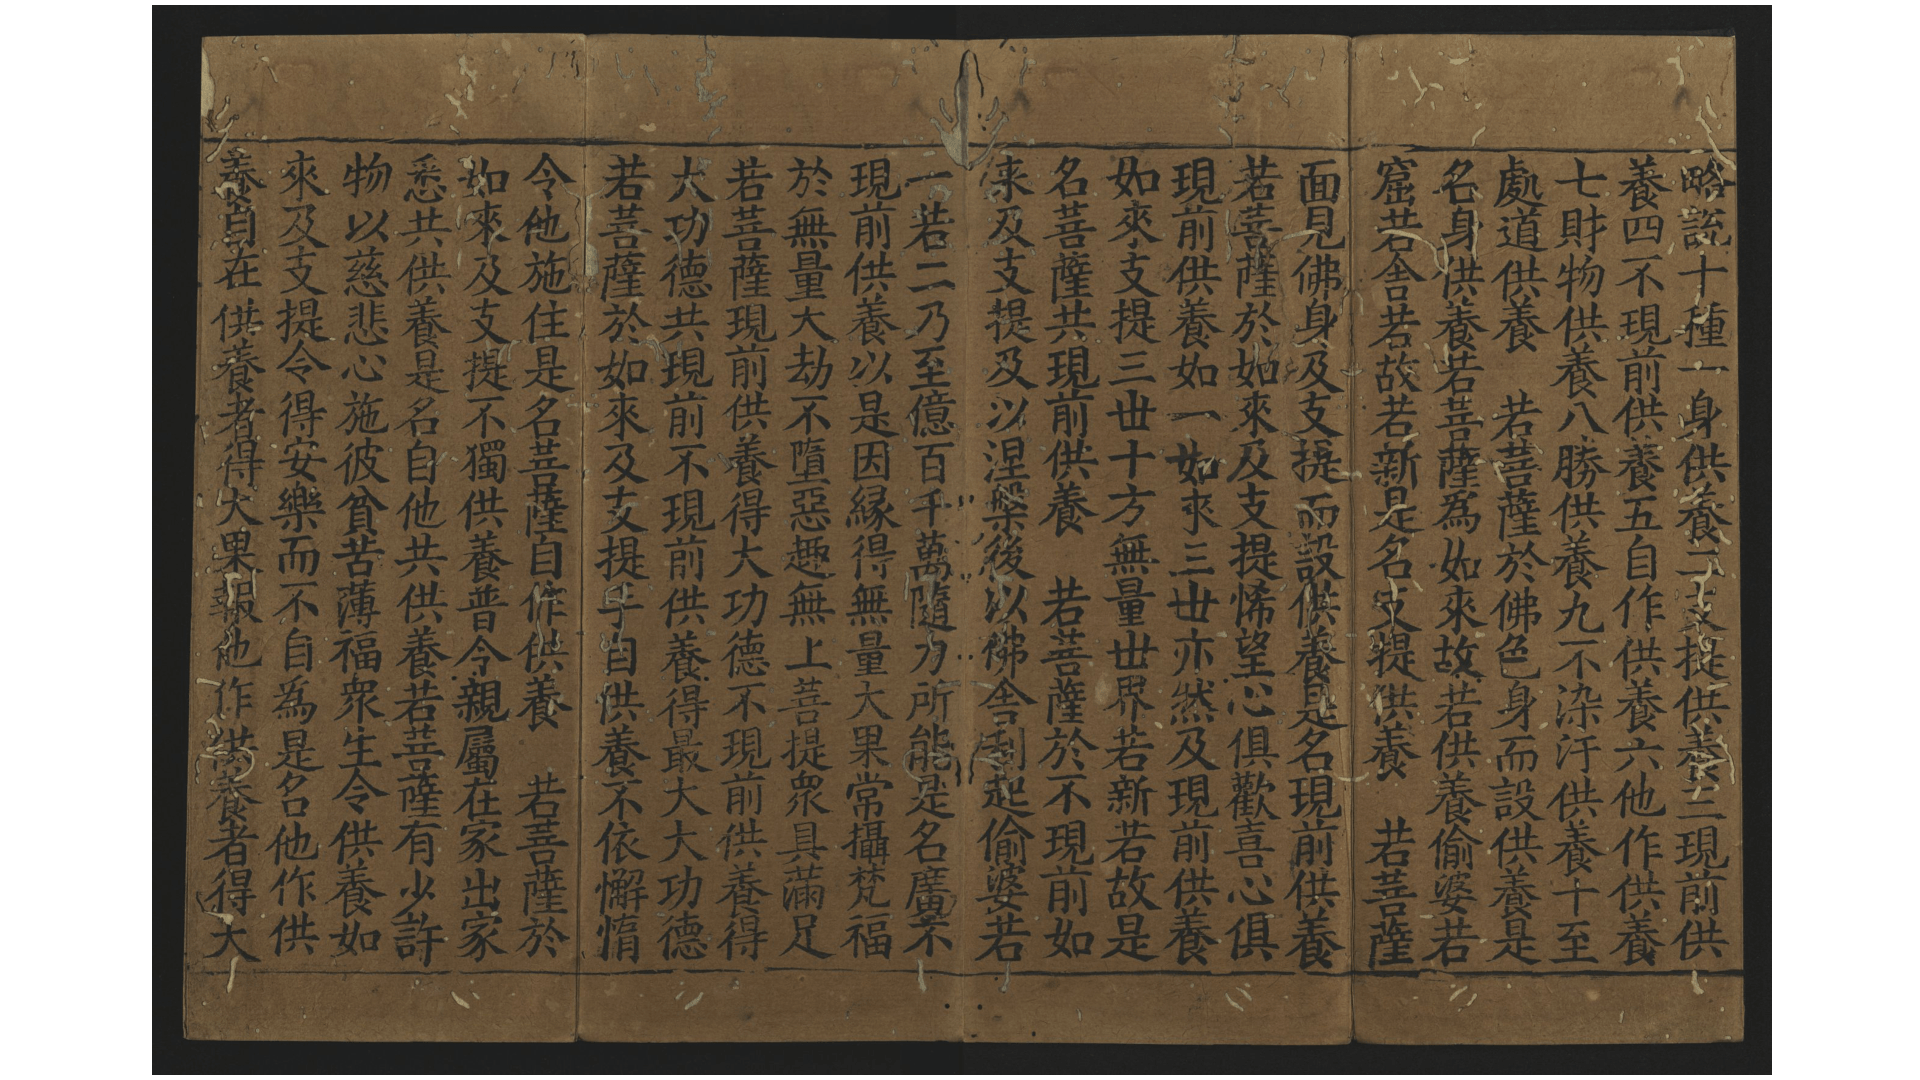 略説十種一身供養二支提供養三現前供
養四不現前供養五自作供養六他作供養
七財物供養八勝供養九不染汙供養十至
處道供養　若菩薩於佛色身而設供養是
名身供養若菩薩為如來故若供養偷婆若
窟若舍若故若新是名支提供養　若菩薩
面見佛身及支提而設供養是名現前供養
若菩薩於如來及支提悕望心俱歡喜心俱
現前供養如一如來三世亦然及現前供養
如來支提三世十方無量世界若新若故是
名菩薩共現前供養　若菩薩於不現前如
来及支提及以涅槃後以佛舍利起偷婆若
一若二乃至億百千萬隨力所能是名廣不
現前供養以是因縁得無量大果常攝梵福
於無量大劫不墮惡趣無上菩提衆具滿足
若菩薩現前供養得大功德不現前供養得
大功德共現前不現前供養得最大大功德
若菩薩於如來及支提手自供養不依懈惰
令他施住是名菩薩自作供養　若菩薩於
如來及支提不獨供養普令親屬在家出家
悉共供養是名自他共供養若菩薩有少許
物以慈悲心施彼貧苦薄福衆生令供養如
來及支提令得安樂而不自為是名他作供
養自在供養者得大果報他作供養者得大